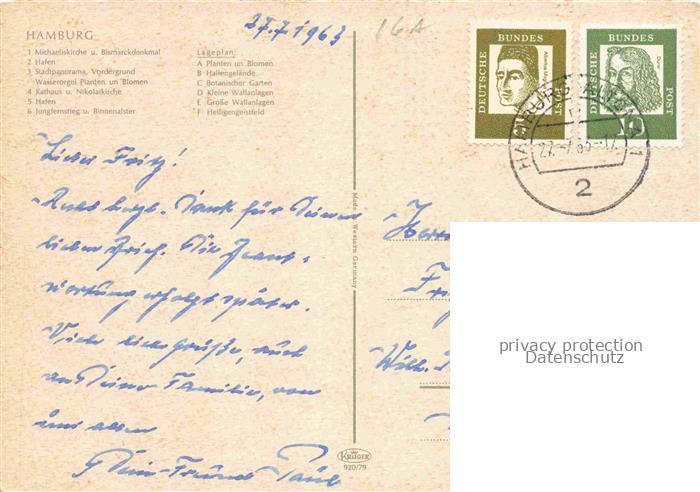 HAMBURG
1 Michaeliskirche u. Bismarckdenkmal
2 Hafen
3 Stadtpanorama, Vordergrund
Wasserorgel Planten un Blomen
4 Rathaus u. Nikolaikirche
5 Hafen
6 Jungfernstieg u. Binnenalster
Lageplan:
A Planten un Blomen
B Hallengelände
C Botanischer Garten
D Kleine Wallanlagen
E Große Wallanlagen
F Heiligengeistfeld
27.7.1963
16A
DEUTSCHE BUNDES POST
DEUTSCHE BUNDES POST
Dürer
HAMBURG ALTONA 1
2
Lieber Fritz!
Recht herzl. Dank für Deinen
lieben Brief. Die Beant-
wortung erfolgt später.
Viele liebe Grüße, auch
an Deine Familie, von
uns allen
Dein Freund Paul
Made Western Germany
Herrn
Wilh.
privacy protection
Datenschutz
KRÜGER
920/79